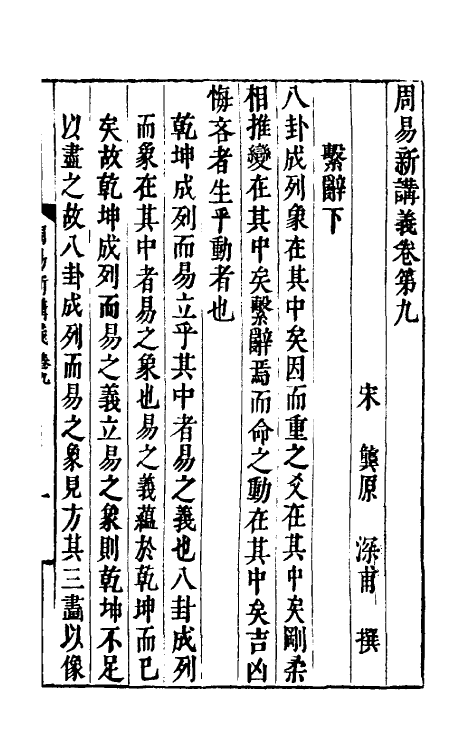 周易新講義卷第九
宋 龔原 深甫 撰
繫辭下
八卦成列象在其中矣因而重之爻在其中矣剛柔
相推變在其中矣繫辭焉而命之動在其中矣吉凶
悔吝者生乎動者也
乾坤成列而易立乎其中者易之義也八卦成列
而象在其中者易之象也易之義蘊於乾坤而已
矣故乾坤成列而易之義立易之象則乾坤不足
以盡之故八卦成列而易之象見方其三畫以像
周易新講義 卷九
一